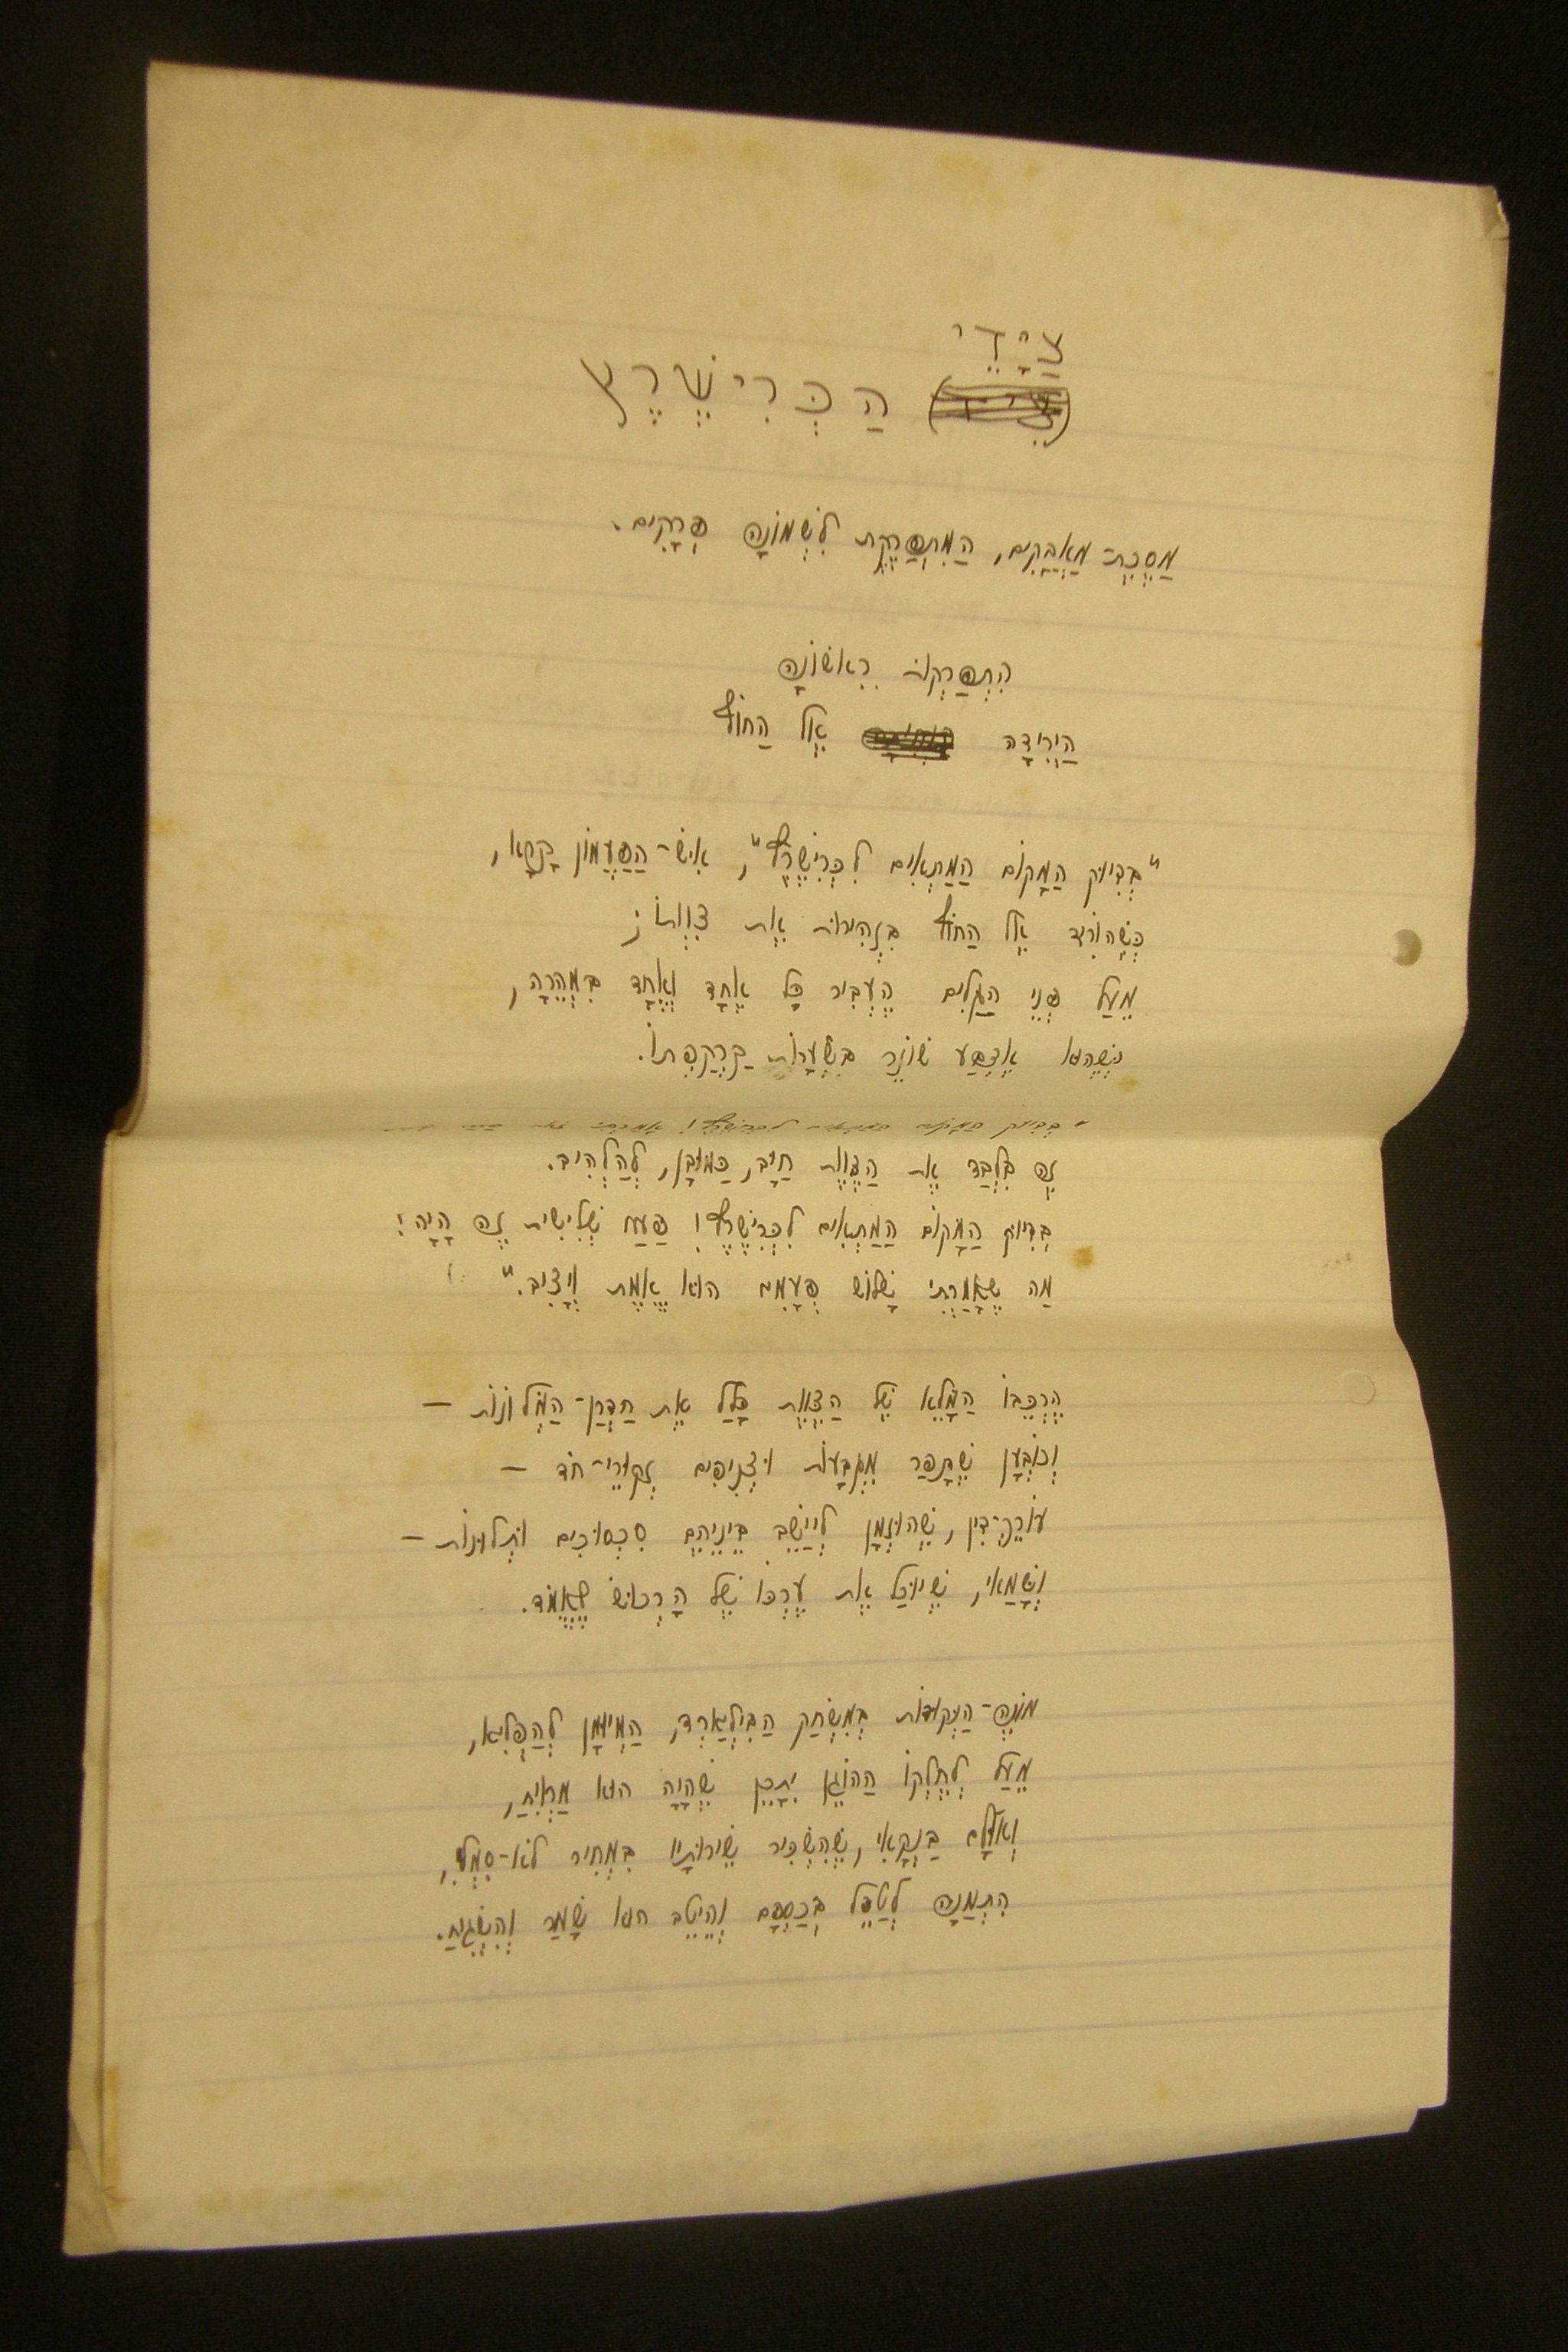 צַיָּדֵי
הַכְּרִישֶׁרֶץ
מַסֶּכֶת־מַאֲבָקִים, הַמִּתְפָּרֶקֶת לִשְׁמוֹנָה פְּרָקִים.
הִתְפָּרְקוּת רִאשׁוֹנָה
הַיְרִידָה אֶל הַחוֹף
"בְּדִיּוּק הַמָּקוֹם הַמַּתְאִים לִכְרִישֶׁרֶץ", אִישׁ־הַפַּעֲמוֹן קָרָא,
כְּשֶׁהוֹרִיד אֶל הַחוֹף בִּזְהִירוּת אֶת צִוְותוֹ;
מֵעַל פְּנֵי הַגַּלִּים הֶעֱבִיר כָּל אֶחָד וְאֶחָד בִּמְהֵרָה,
כְּשֶׁהוּא אֶצְבַּע שׁוֹזֵר בְּשַׂעֲרוֹת קַרְקַפְתּוֹ.
זֶה בִּלְבַד אֶת הַצֶּוֶת חַיָּב, כַּמּוּבָן, לְהַלְהִיב.
בְּדִיּוּק הַמָּקוֹם הַמַּתְאִים לִכְרִישֶׁרֶץ! פַּעַם שְׁלִישִׁית זֶה הָיָה:
מַה שֶּׁאָמַרְתִּי שָׁלוֹשׁ פְּעָמִים הוּא אֱמֶת וְיָצִיב."
הֶרְכֵּבוֹ הַמָּלֵא שֶׁל הַצֶּוֶת כָּלַל אֶת חַדְרַן־הַמְּלוֹנוֹת –
וְכוֹבְעָן שֶׁתָּפַר מִגְבָּעוֹת וּצְנִיפִים זְקוּרֵי־חֹד –
עוֹרֵךְ־דִּין, שֶׁהוּזְמַן לְיַישֵּׁב בֵּינֵיהֶם סִכְסוּכִים וּתְלוּנוֹת –
וְשַׁמַּאי, שֶׁיּוּכַל אֶת עֶרְכּוֹ שֶׁל הָרְכוּשׁ לֶאֱמֹד.
מוֹנֶה־הַנְּקוּדּוֹת בְּמִשְׂחַק הַבִּילְיַארְד, הַמְיוּמָּן לְהַפְלִיא,
מֵעַל לְחֶלְקוֹ הַהוֹגֵן יִתָּכֵן שֶׁהָיָה הוּא מַרְוִיחַ,
וְאוּלָם בַּנְקַאי, שֶׁהִשְׂכִּיר שֵׁירוּתָיו בִּמְחִיר לֹא־סִמְלִי,
הִתְמַנָּה לְטַפֵּל בְּכַסְפָּם וְהֵיטֵב הוּא שָׁמַר וְהִשְׁגִּיחַ.